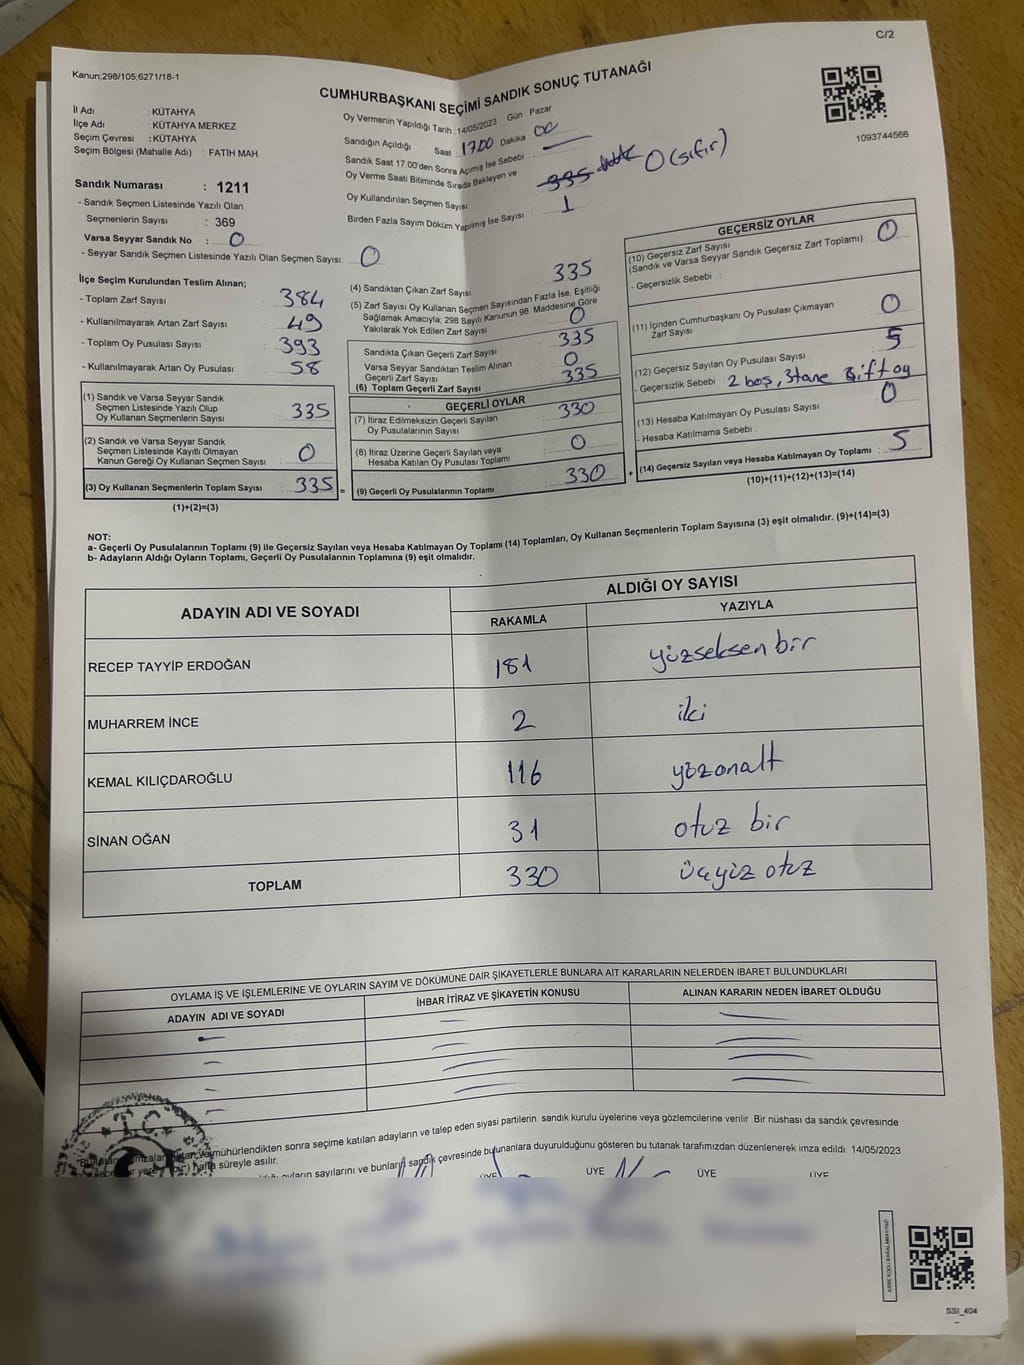 C/2
Kanun;298/105;6271/18-1
CUMHURBAŞKANI SEÇİMİ SANDIK SONUÇ TUTANAĞI
1093744566
İl Adı : KÜTAHYA
İlçe Adı : KÜTAHYA MERKEZ
Seçim Çevresi : KÜTAHYA
Seçim Bölgesi (Mahalle Adı) : FATİH MAH.
Sandık Numarası : 1211
- Sandık Seçmen Listesinde Yazılı Olan
Seçmenlerin Sayısı : 369
Varsa Seyyar Sandık No : 0
- Seyyar Sandık Seçmen Listesinde Yazılı Olan Seçmen Sayısı: 0
Oy Vermenin Yapıldığı Tarih : 14/05/2023 Gün : Pazar
Sandığın Açıldığı Saat 17.00 Dakika : 00
Sandık Saat 17.00'den Sonra Açımış İse Sebebi
Oy Verme Saati Bitiminde Sırada Bekleyen ve
Oy Kullandırılan Seçmen Sayısı : 335 0 (sıfır)
Birden Fazla Sayım Döküm Yapılmış İse Sayısı : 1
İlçe Seçim Kurulundan Teslim Alınan;
- Toplam Zarf Sayısı : 384
- Kullanılmayarak Artan Zarf Sayısı : 49
- Toplam Oy Pusulası Sayısı : 393
- Kullanılmayarak Artan Oy Pusulası : 58
(1) Sandık ve Varsa Seyyar Sandık
Seçmen Listesinde Yazılı Olup
Oy Kullanan Seçmenlerin Sayısı : 335
(2) Sandık ve Varsa Seyyar Sandık
Seçmen Listesinde Kayıtlı Olmayan
Kanun Gereği Oy Kullanan Seçmen Sayısı : 0
(3) Oy Kullanan Seçmenlerin Toplam Sayısı : 335 =
(1)+(2)=(3)
(4) Sandıktan Çıkan Zarf Sayısı : 335
(5) Zarf Sayısı Oy Kullanan Seçmen Sayısından Fazla İse, Eşitliği
Sağlamak Amacıyla; 298 Sayılı Kanunun 98. Maddesine Göre
Yakılarak Yok Edilen Zarf Sayısı : 0
Sandıkta Çıkan Geçerli Zarf Sayısı : 335
Varsa Seyyar Sandıktan Teslim Alınan
Geçerli Zarf Sayısı : 0
(6) Toplam Geçerli Zarf Sayısı : 335
GEÇERLİ OYLAR
(7) İtiraz Edilmeksizin Geçerli Sayılan
Oy Pusulalarının Sayısı : 330
(8) İtiraz Üzerine Geçerli Sayılan veya
Hesaba Katılan Oy Pusulası Toplamı : 0
(9) Geçerli Oy Pusulalarının Toplamı : 330 +
GEÇERSİZ OYLAR
(10) Geçersiz Zarf Sayısı
(Sandık ve Varsa Seyyar Sandık Geçersiz Zarf Toplamı) : 0
- Geçersizlik Sebebi :
(11) İçinden Cumhurbaşkanı Oy Pusulası Çıkmayan
Zarf Sayısı : 0
(12) Geçersiz Sayılan Oy Pusulası Sayısı : 5
- Geçersizlik Sebebi : 2 boş, 3 tane çift oy
(13) Hesaba Katılmayan Oy Pusulası Sayısı : 0
- Hesaba Katılmama Sebebi :
(14) Geçersiz Sayılan veya Hesaba Katılmayan Oy Toplamı : 5
(10)+(11)+(12)+(13)=(14)
NOT:
a- Geçerli Oy Pusulalarının Toplamı (9) ile Geçersiz Sayılan veya Hesaba Katılmayan Oy Toplamı (14) Toplamları, Oy Kullanan Seçmenlerin Toplam Sayısına (3) eşit olmalıdır. (9)+(14)=(3)
b- Adayların Aldığı Oyların Toplamı, Geçerli Oy Pusulalarının Toplamına (9) eşit olmalıdır.
ADAYIN ADI VE SOYADI
ALDIĞI OY SAYISI
RAKAMLA YAZIYLA
RECEP TAYYİP ERDOĞAN 181 yüzseksen bir
MUHARREM İNCE 2 iki
KEMAL KILIÇDAROĞLU 116 yüzonaltı
SİNAN OĞAN 31 otuz bir
TOPLAM 330 üçyüz otuz
OYLAMA İŞ VE İŞLEMLERİNE VE OYLARIN SAYIM VE DÖKÜMÜNE DAİR ŞİKAYETLERLE BUNLARA AİT KARARLARIN NELERDEN İBARET BULUNDUKLARI
ADAYIN ADI VE SOYADI İHBAR İTİRAZ VE ŞİKAYETİN KONUSU ALINAN KARARIN NEDEN İBARET OLDUĞU
T.C.
mühürlendikten sonra seçime katılan adayların ve talep eden siyasi partilerin sandık kurulu üyelerine veya gözlemcilerine verilir Bir nüshası da sandık çevresinde
(bir) hafta süreyle asılır.
oyların sayılarını ve bunların sandık çevresinde bulunanlara duyurulduğunu gösteren bu tutanak tarafımızdan düzenlenerek imza edildi. 14/05/2023
ÜYE ÜYE ÜYE ÜYE
SSI_404